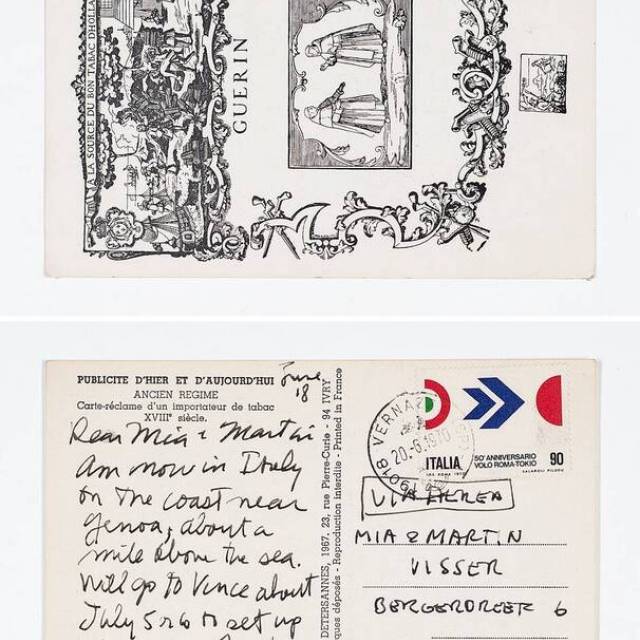 A LA SOURCE DU BON TABAC DHOLLA
GUERIN
PUBLICITE D'HIER ET D'AUJOURD'HUI
ANCIEN REGIME
Carte-réclame d'un importateur de tabac
XVIIIe siècle.
June
18
Dear Mia & Martin
Am now in Italy
on the coast near
Genoa, about a
mile above the sea.
Will go to Vence about
July 5 or 6 to set up
DETERSANNES, 1967. 23, rue Pierre-Curie - 94 IVRY
ques déposés - Reproduction interdite - Printed in France
VERNAZ
20-6.1970
ITALIA
50° ANNIVERSARIO
VOLO ROMA-TOKIO
90
VIA AEREA
MIA & MARTIN
VISSER
BERGERDREEF 6